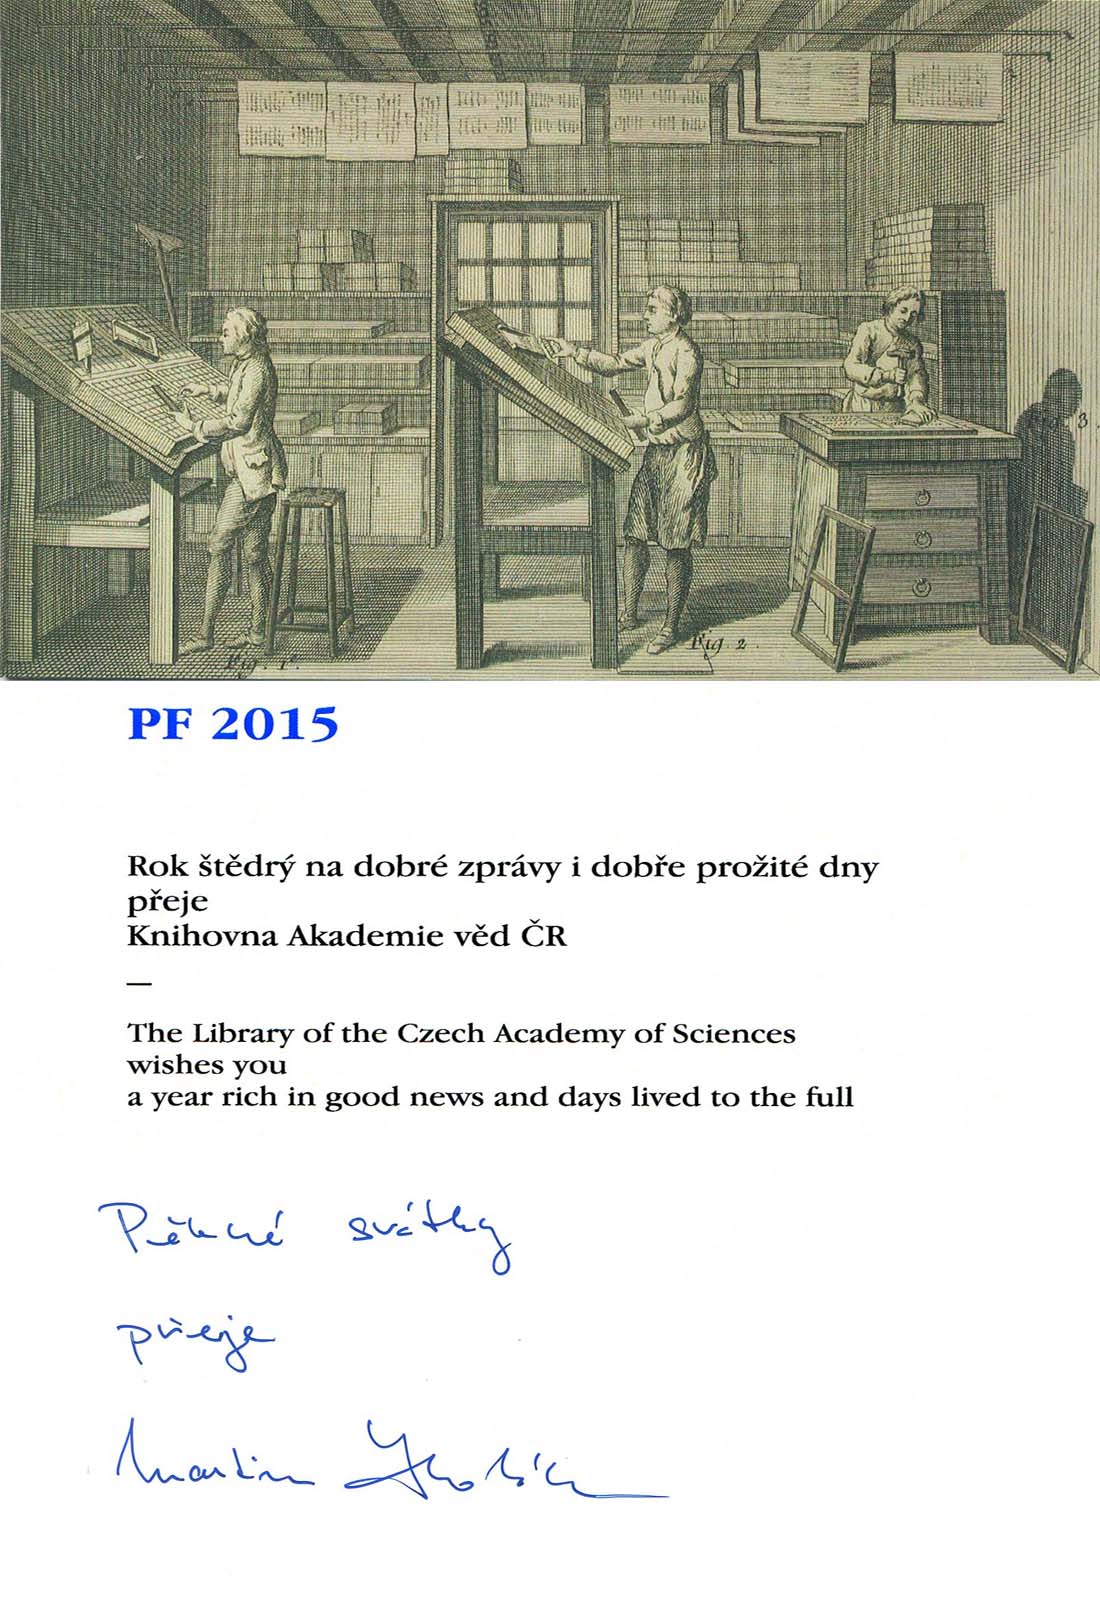 Fig. 1.
Fig. 2.
3
PF 2015
Rok štědrý na dobré zprávy i dobře prožité dny
přeje
Knihovna Akademie věd ČR
—
The Library of the Czech Academy of Sciences
wishes you
a year rich in good news and days lived to the full
Pěkné svátky
přeje
Martin